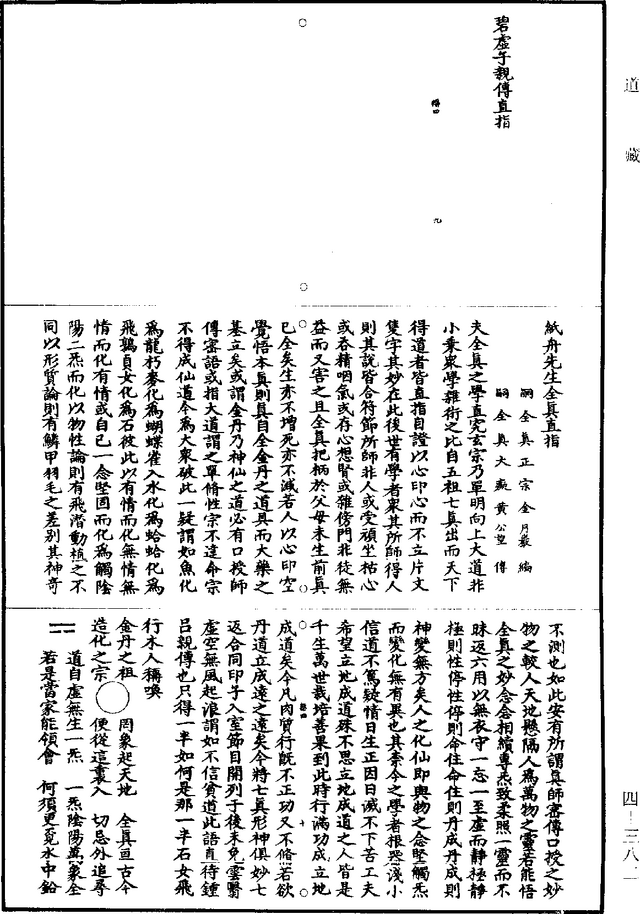 道藏
碧虛子親傳直指
紙舟先生全真直指
嗣全真正宗金月巖編
嗣全真大癡黃公望傳
夫全真之學直究玄宗乃單明向上大道非
小乘衆學雜術之比自五祖七真出而天下
得道者皆直指自證以心印心而不立片文
隻字其妙在此後世有學者衆其所師得人
則其說皆合符節所師非人或受頑坐枯心
或吞精咽氣或存心想腎或雜傍門非徒無
益而又害之且全真把柄於父母未生前真
已全矣生亦不增死亦不減若人以心印空
覺悟本真則真自全金丹之道具而大藥之
基立矣或謂金丹乃神仙之道必有口授師
傳密語或指大道謂之單脩性宗不達命宗
不得成仙道今爲大衆破此一疑謂如魚化
爲龍朽麥化爲蝴蝶雀入水化爲蛤蛤化爲
飛鶉貞女化爲石彼此以有情而化無情無
情而化有情或自己一念堅固而化爲觸陰
陽二炁而化以物性論則有飛潛動植之不
同以形質論則有鱗甲羽毛之差別其神奇
不測也如此安有所謂真師密傳口授之妙
物之較人天地懸隔人爲萬物之靈若能悟
全真之妙念念相續專炁致柔照一靈而不
昧返六用以無衣守一忘一至虛而靜極靜
極則性停性停則命住命住則丹成丹成則
神變無方矣人之化仙即與物之念堅觸炁
而變化無有異也其柰今之學者根器淺小
信道不篤疑情日生正因日減不下苦工夫
希望立地成道殊不思立地成道之人皆是
千生萬世栽培善果到此時行滿功成立地
成道矣今凡肉質行旣不正功又不脩若欲
丹道立成遠之遠矣今將七真形神俱妙七
返合同印子入室節目開列于後未免雲翳
虛空無風起浪謂如不信貧道此語直待鍾
呂親傳也只得一半如何是那一半石女飛
行木人稱喚
金丹之祖 罔象起天地 全真亘古今
造化之宗 便從這裏入 切忌外追尋
道自虛無生一炁 一炁陰陽萬象全
若是當家能領會 何須更覓水中鉛